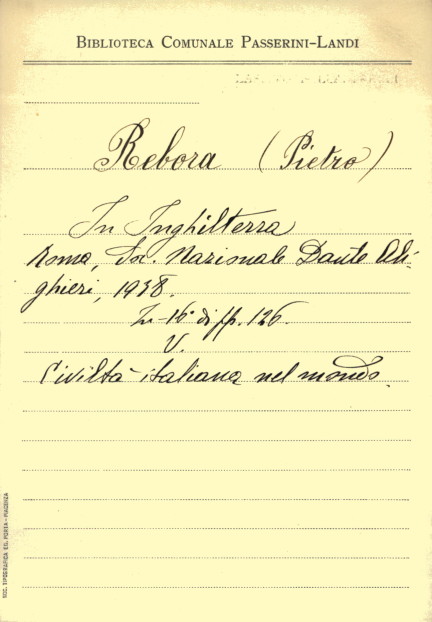 BIBLIOTECA COMUNALE PASSERINI-LANDI
Rebora (Pietro)
In Inghilterra
Roma, Soc. Nazionale Dante Ali-
ghieri, 1938.
In-16° di pp. 126.
V.
Civiltà italiana nel mondo.
SOC. TIPOGRAFICA ED. PORTA-PIACENZA